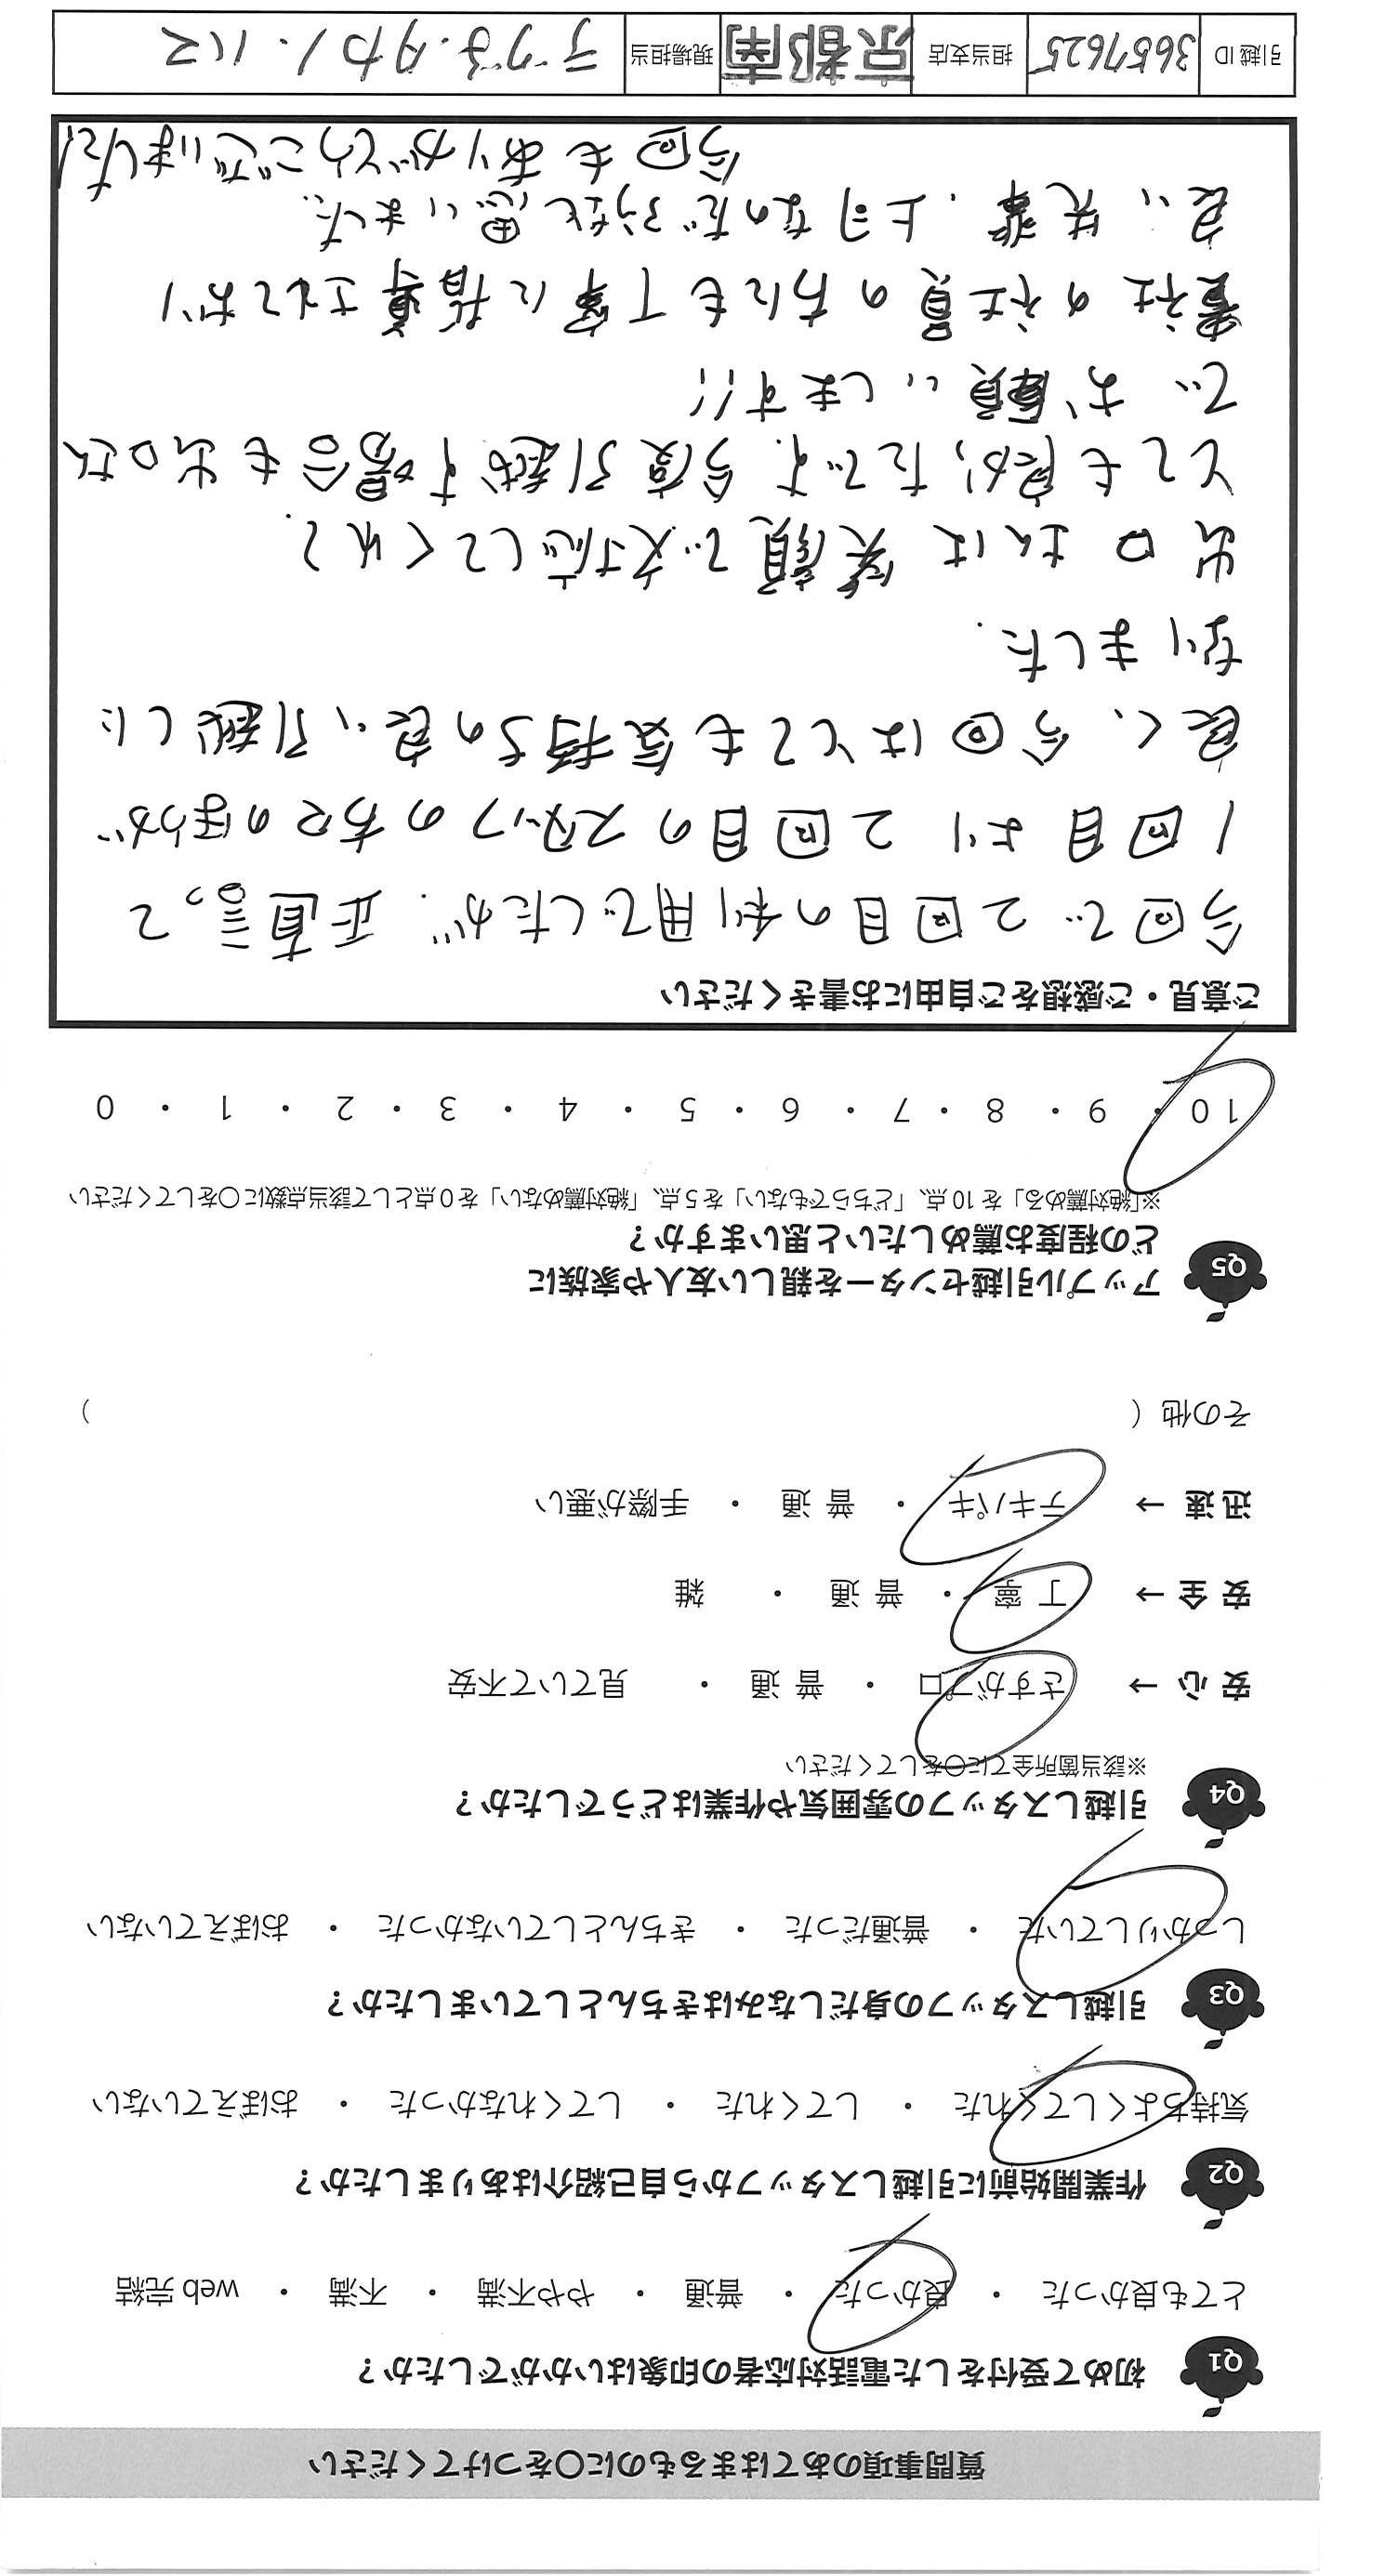 質問事項のあてはまるものに○をつけてください
Q1 初めて受付をした電話対応者の印象はいかがでしたか？
とても良かった ・ 良かった ・ 普通 ・ やや不満 ・ 不満 ・ web 完結
Q2 作業開始前に引越しスタッフから自己紹介はありましたか？
気持ちよくしてくれた ・ してくれた ・ してくれなかった ・ おぼえていない
Q3 引越しスタッフの身だしなみはきちんとしていましたか？
しっかりしていた ・ 普通だった ・ きちんとしていなかった ・ おぼえていない
Q4 引越しスタッフの雰囲気や作業はどうでしたか？
※該当箇所全てに○をしてください
安 心 → さすがプロ ・ 普 通 ・ 見ていて不安
安 全 → 丁 寧 ・ 普 通 ・ 雑
迅 速 → テキパキ ・ 普 通 ・ 手際が悪い
その他（ ）
Q5 アップル引越センターを親しい友人や家族に
どの程度お薦めしたいと思いますか？
※「絶対薦める」を 10 点、「どちらでもない」を 5 点、「絶対薦めない」を 0 点として該当点数に○をしてください
10 ・ 9 ・ 8 ・ 7 ・ 6 ・ 5 ・ 4 ・ 3 ・ 2 ・ 1 ・ 0
ご意見・ご感想をご自由にお書きください
今回で 2回目の利用でしたが、正直言って
1回目より 2回目のスタッフの方々のほうが
良く、今回はとても気持ちの良い引越しに
なりました.
出口さんは 笑顔で対応してくれて
とても良かったです. 今度引越す場合も出口さん
で お願いします!!
貴社の社員の方にも丁寧に指導されており
良い先輩、上司なのだろうなと思いました.
今回もありがとうございました!
引越 ID 3657625 担当支店 京都南 現場担当 デグチ・タカノ・ハマ